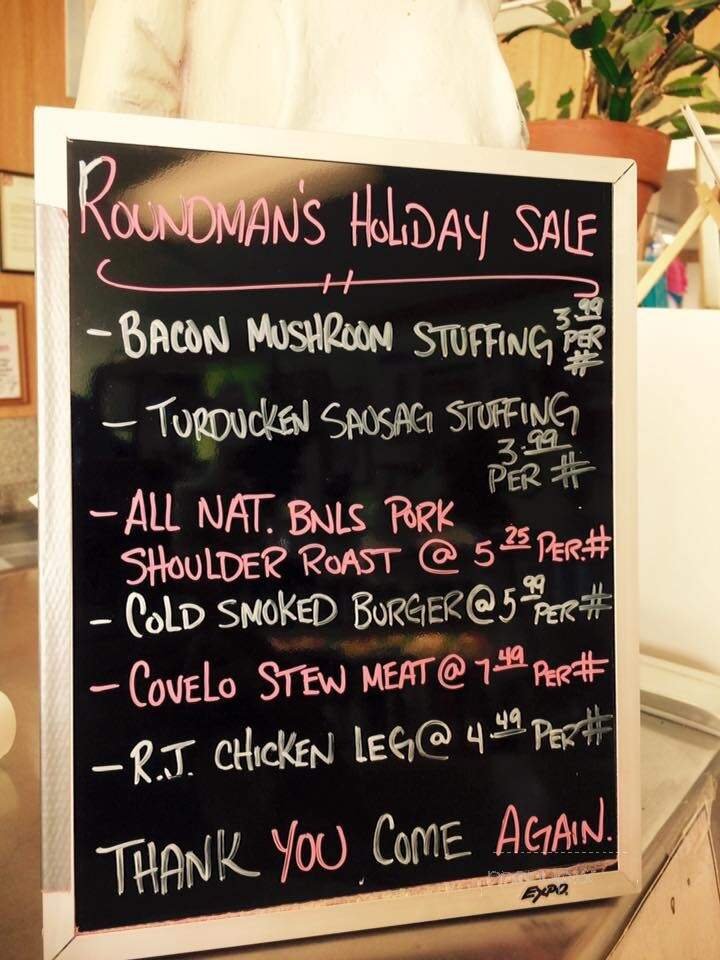 ROUNDMAN'S HOLIDAY SALE
- BACON MUSHROOM STUFFING 3.99 PER #
- TURDUCKEN SAUSAG STUFFING
3.99
PER #
- ALL NAT. BNLS PORK
SHOULDER ROAST @ 5 25 PER.#
- COLD SMOKED BURGER @ 5 99 PER #
- COVELO STEW MEAT @ 7 49 PER #
- R.J. CHICKEN LEG @ 4 49 PER #
THANK YOU COME AGAIN.
EXPO